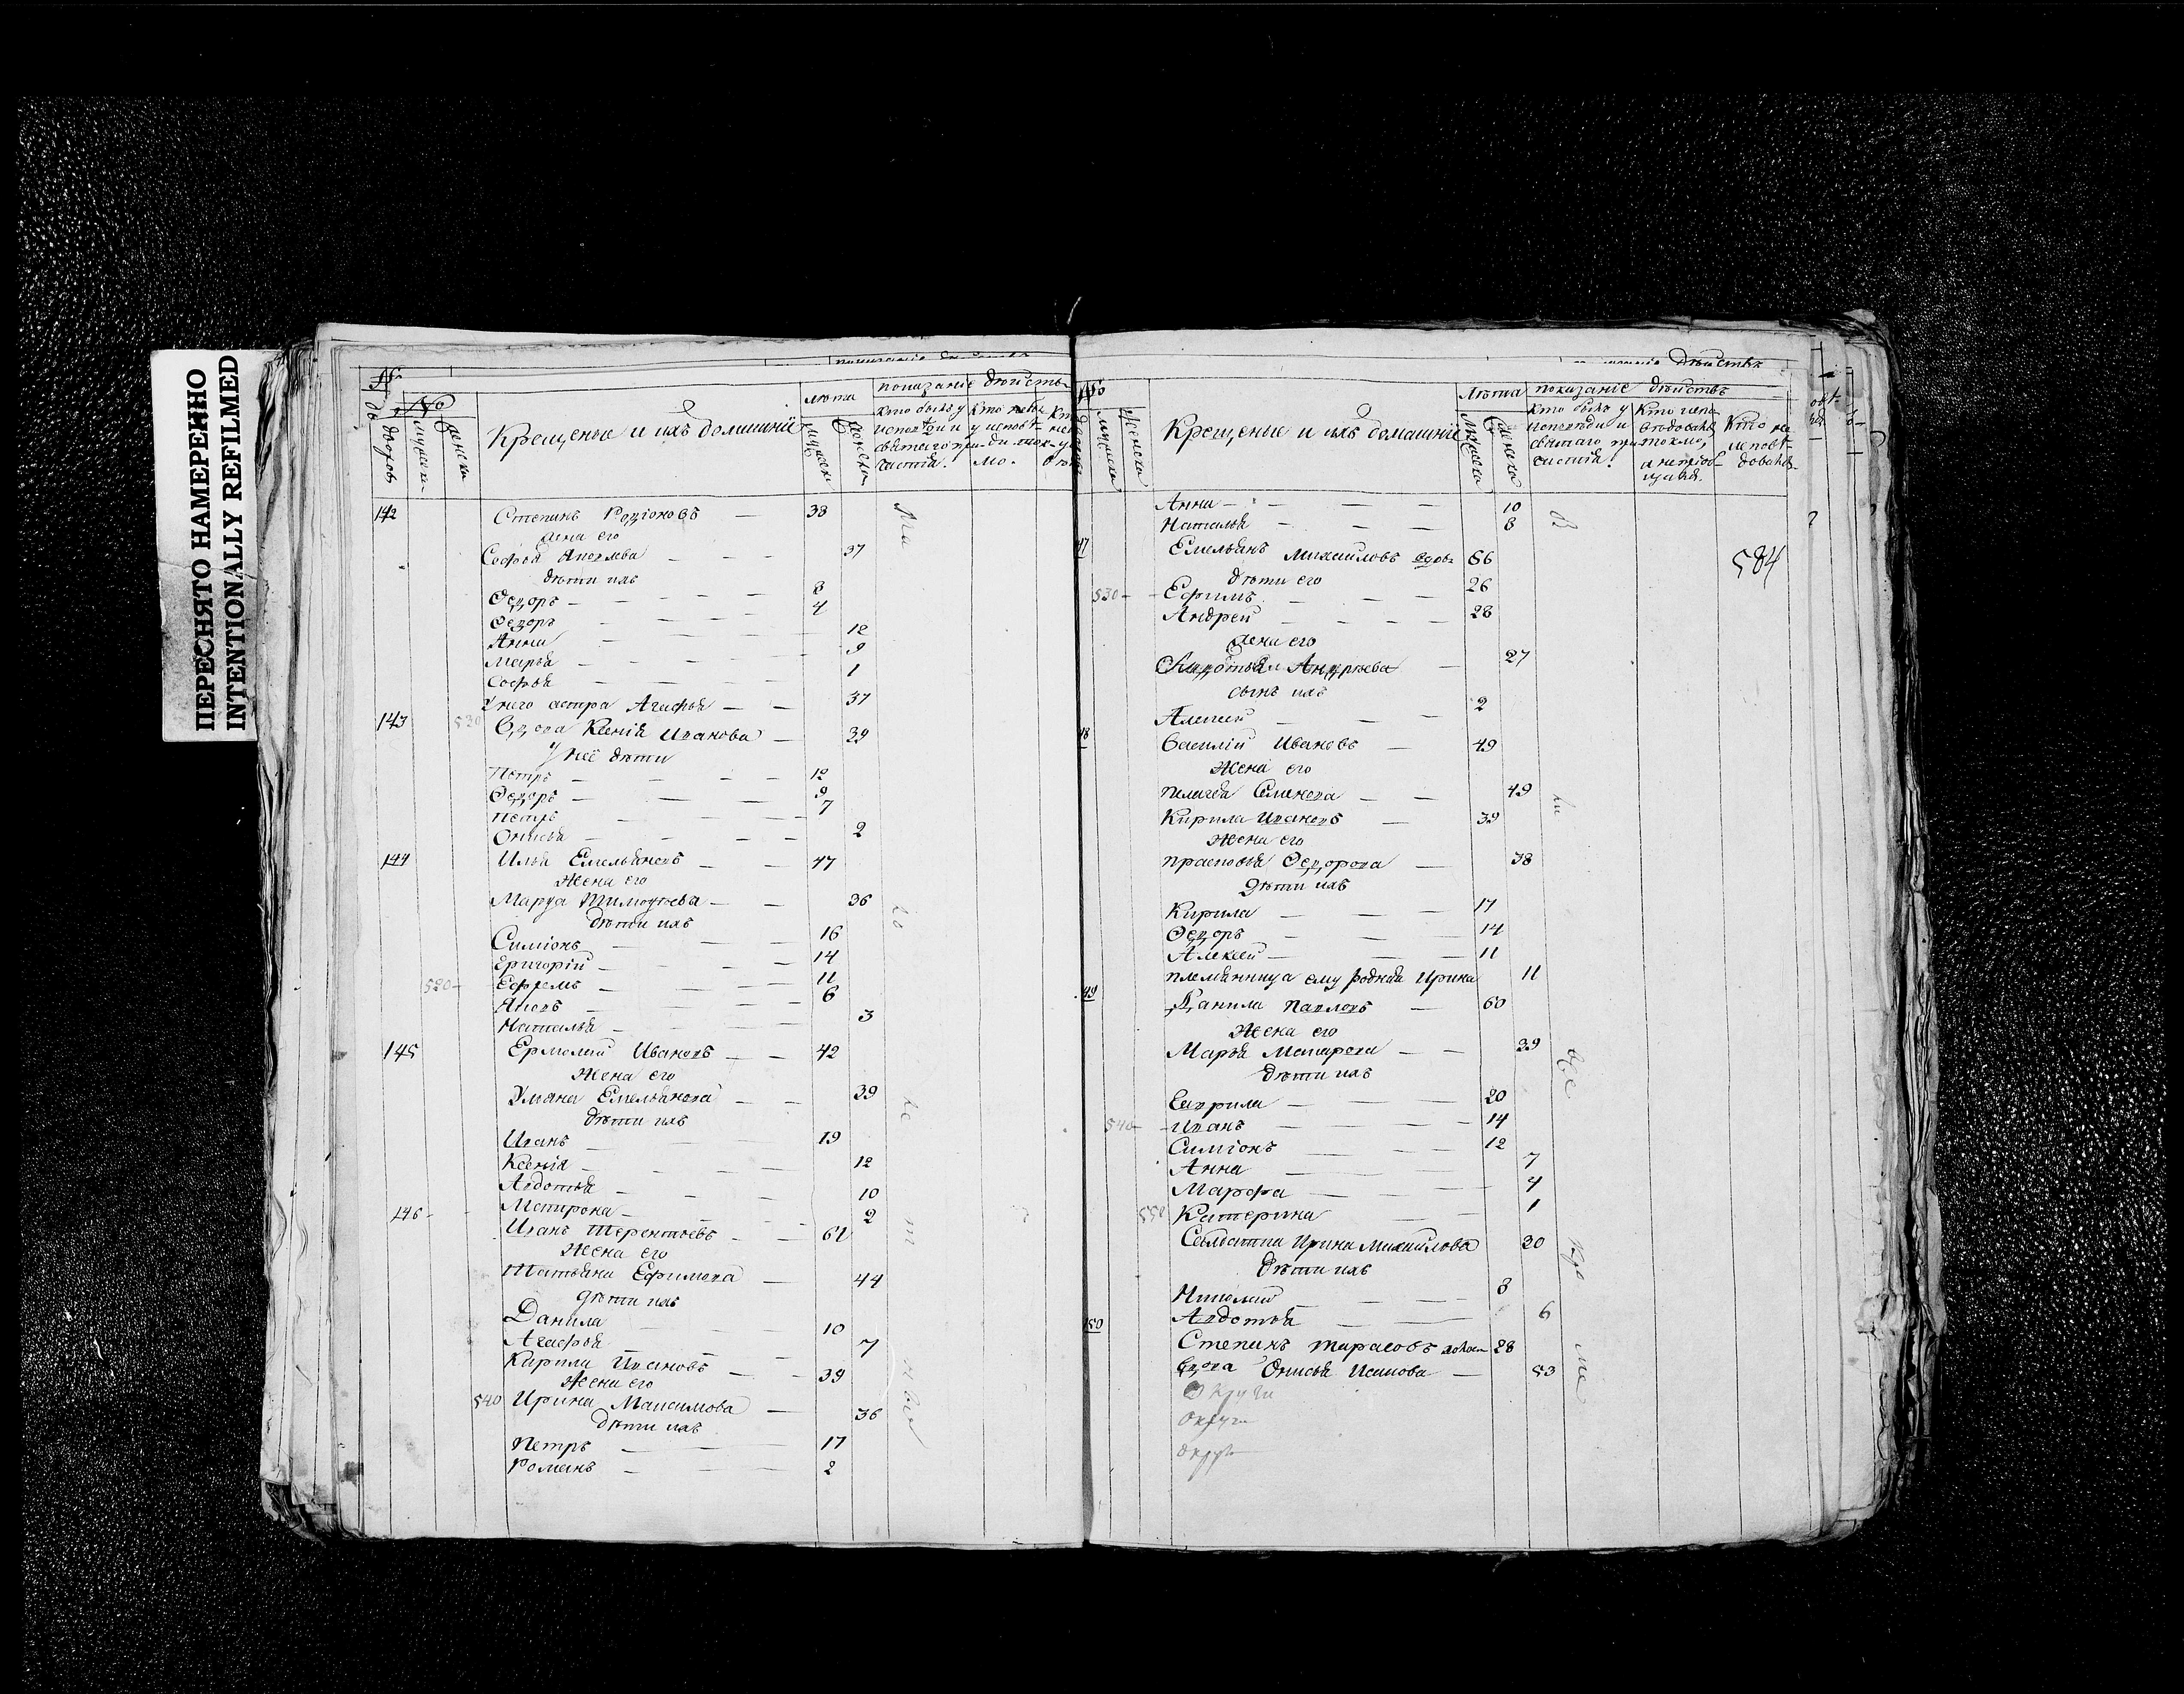 ПЕРЕСНЯТО НАМЕРЕННО
INTENTIONALLY REFILMED
показаніе дѣйствъ
№
дворовъ
№
мужеска
женска
Крещеные и ихъ домашніе
лѣта
мужеска
женска
142 Степанъ Родіоновъ — 38
жена его
Софья — — 37
дѣти ихъ
Ѳедоръ — — — — 8
Ѳедоръ — — — — 4
Анна — — — — 12
Марья — — — — 9
Софья — — — — 1
У него сестра Агафья — — 37
143 530 Вдова Ксенія Иванова — 39
У неё дѣти
Петръ — — — — 12
Ѳедоръ — — — — 9
Петръ — — — — 7
Онисья — — — — 2
144 Илья Емельяновъ — — 47
Жена его
Марѳа Тимоѳеева — — 36
дѣти ихъ
Симіонъ — — — 16
Григорій — — — 14
520 — Ефремъ — — — 11
— — — 6
Наталья — — — 3
145 Ермолай Ивановъ — — 42
Жена его
Ульяна Емельянова — — 39
дѣти ихъ
Иванъ — — — 19
Ксенія — — — — 12
Авдотья — — — 10
Матрона — — — 2
146 — Иванъ Терентьевъ — — 61
Жена его
Татьяна Ефимова — 44
дѣти ихъ
Данила — — — 10
Агафья — — — 7
Кирила Ивановъ — — 39
Жена его
540 Ирина Максимова — 36
дѣти ихъ
Петръ — — — 17
Романъ — — — 2
показаніе дѣйствъ
№
мужеска
женска
Крещеные и ихъ домашніе
Лѣта
мужеска
женска
кто былъ у исповѣди и святаго причастія.
Кто исповѣдовался токмо, а не пріобщался.
Кто не исповѣдовался
Анна — — — — 10
Наталья — — — 8
584
47 Емельянъ Михайловъ вдовъ 56
дѣти его
530 — Ефимъ — — — 26
Андрей — — — — 28
жена его
Авдотья Андреева — 27
сынъ ихъ
Алексей — — — 2
48 Василій Ивановъ — 49
Жена его
Пелагея Семенова — — 49
Кирила Ивановъ — 39
Жена его
Прасковья Ѳедорова — 38
Дѣти ихъ
Кирила — — — 17
Ѳедоръ — — — 14
Алексей — — — 11
племянница ему родная Ирина 11
49 Данила Павловъ — 60
Жена его
Марья Макарова — — 39
дѣти ихъ
Гаврила — — — 20
540 — Иванъ — — — 14
Симіонъ — — — 12
Анна — — — 7
Марфа — — — 4
550 Катерина — — 1
Салдатка Ирина Михайлова 30
дѣти ихъ
Николай — — — 8
Авдотья — — 6
50 Степанъ Тарасовъ 28
Вдова Онисья Исакова — 53
Округи
Округи
Округ